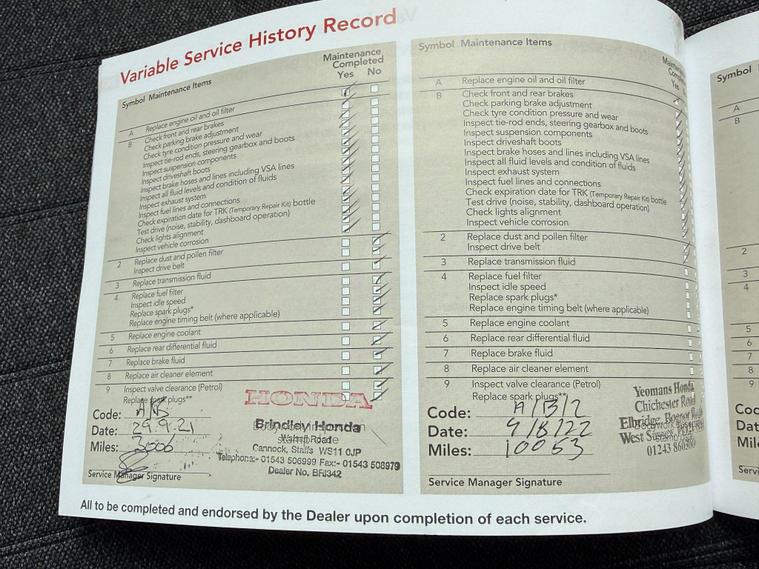 Variable Service History Record
Symbol Maintenance Items
Maintenance
Completed
Yes No
A Replace engine oil and oil filter
B Check front and rear brakes
Check parking brake adjustment
Check tyre condition pressure and wear
Inspect tie-rod ends, steering gearbox and boots
Inspect suspension components
Inspect driveshaft boots
Inspect brake hoses and lines including VSA lines
Inspect all fluid levels and condition of fluids
Inspect exhaust system
Inspect fuel lines and connections
Check expiration date for TRK (Temporary Repair Kit) bottle
Test drive (noise, stability, dashboard operation)
Check lights alignment
Inspect vehicle corrosion
2 Replace dust and pollen filter
Inspect drive belt
3 Replace transmission fluid
4 Replace fuel filter
Inspect idle speed
Replace spark plugs*
Replace engine timing belt (where applicable)
5 Replace engine coolant
6 Replace rear differential fluid
7 Replace brake fluid
8 Replace air cleaner element
9 Inspect valve clearance (Petrol)
Replace spark plugs**
Code:
Date: 29.9.21
Miles: 3006
Service Manager Signature
HONDA
Brindley Honda
Walmill Road
Cannock, Staffs WS11 0JP
Telephone:- 01543 506999 Fax:- 01543 508979
Dealer No. BRI342
Symbol Maintenance Items
A Replace engine oil and oil filter
B Check front and rear brakes
Check parking brake adjustment
Check tyre condition pressure and wear
Inspect tie-rod ends, steering gearbox and boots
Inspect suspension components
Inspect driveshaft boots
Inspect brake hoses and lines including VSA lines
Inspect all fluid levels and condition of fluids
Inspect exhaust system
Inspect fuel lines and connections
Check expiration date for TRK (Temporary Repair Kit) bottle
Test drive (noise, stability, dashboard operation)
Check lights alignment
Inspect vehicle corrosion
2 Replace dust and pollen filter
Inspect drive belt
3 Replace transmission fluid
4 Replace fuel filter
Inspect idle speed
Replace spark plugs*
Replace engine timing belt (where applicable)
5 Replace engine coolant
6 Replace rear differential fluid
7 Replace brake fluid
8 Replace air cleaner element
9 Inspect valve clearance (Petrol)
Replace spark plugs**
Code: A/B/2
Date: 4/8/22
Miles: 10063
Service Manager Signature
Yeomans Honda
Chichester Road
Elbridge, Bognor
West Sussex,
01243
All to be completed and endorsed by the Dealer upon completion of each service.
Symbol
A
B
2
3
4
5
6
7
8
9